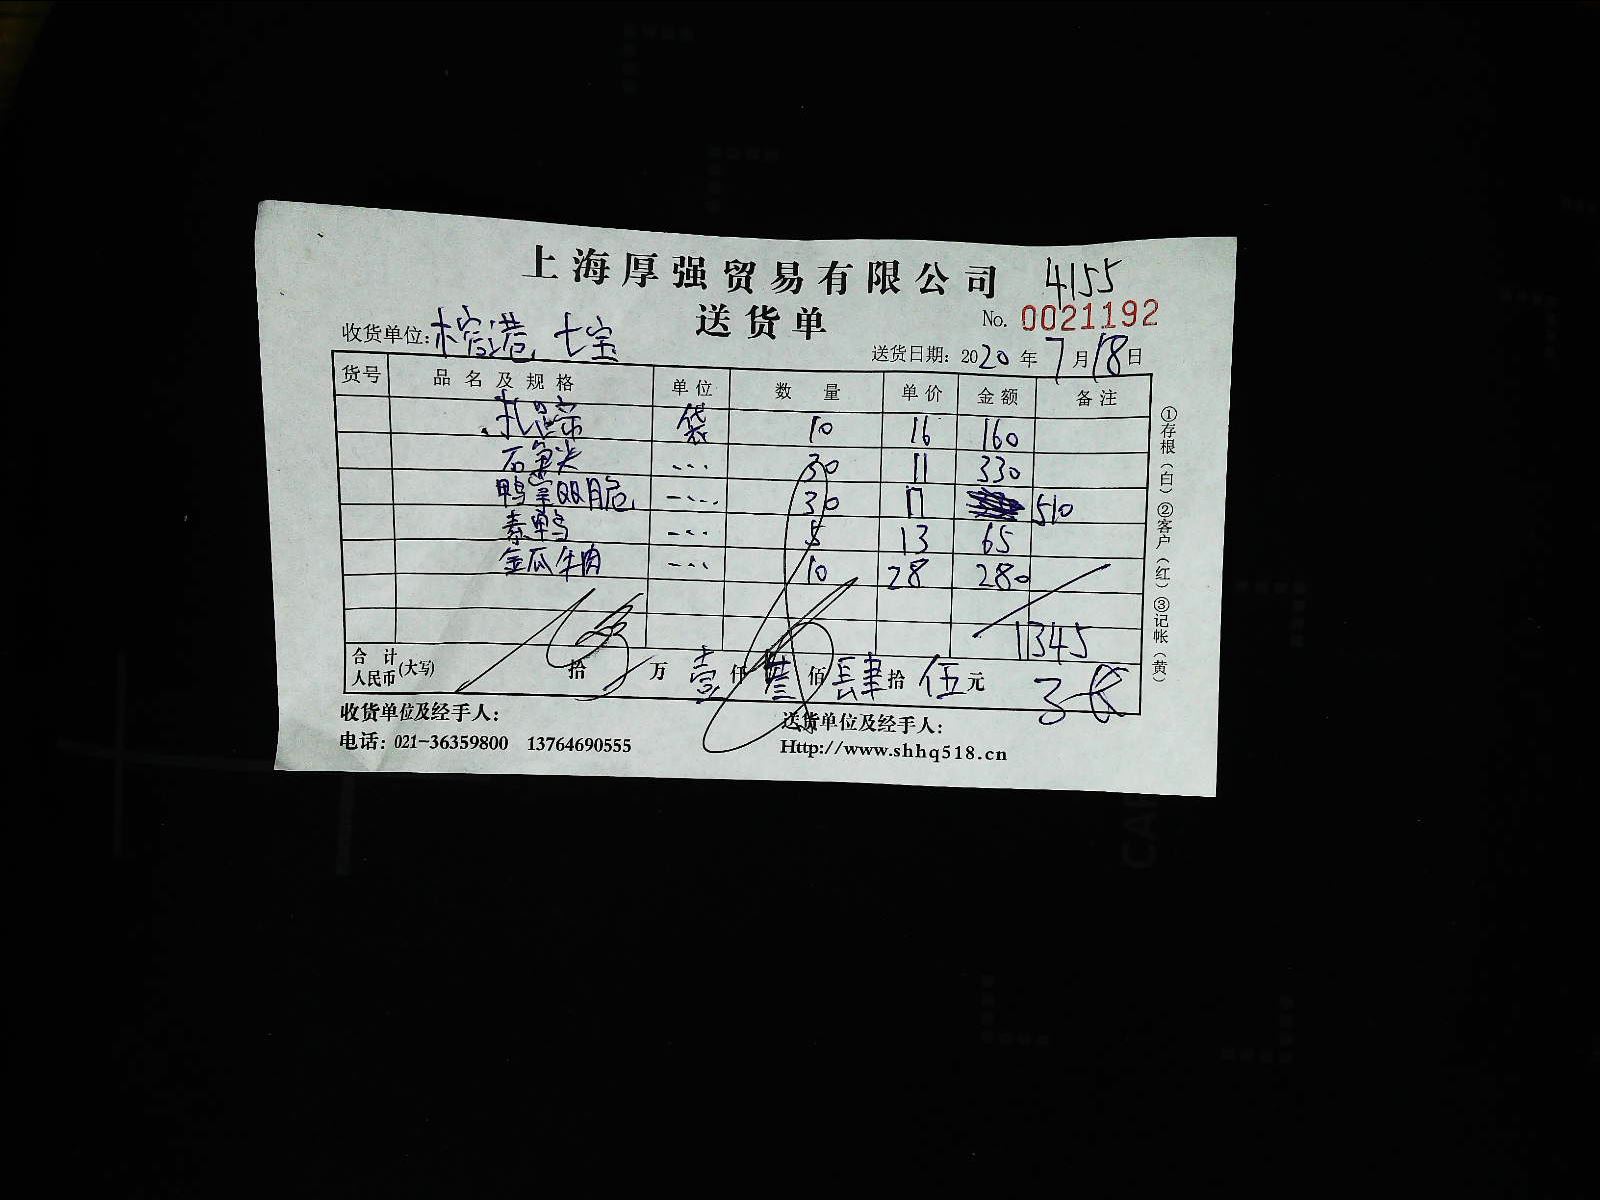 上海厚强贸易有限公司 4155
送货单 No. 0021192
收货单位: 榕港 七宝 送货日期: 2020年7月18日
货号 品名及规格 单位 数量 单价 金额 备注
扎蹄 袋 10 16 160
石 尖 30 11 330
鸭 双脆 30 17 510
素鸭 5 13 65
金瓜牛肉 10 28 280
1345
合计人民币(大写) 拾 万 壹仟叁佰肆拾伍元
收货单位及经手人: 送货单位及经手人:
电话: 021-36359800 13764690555 Http://www.shhq518.cn
①存根(白)②客户(红)③记帐(黄)